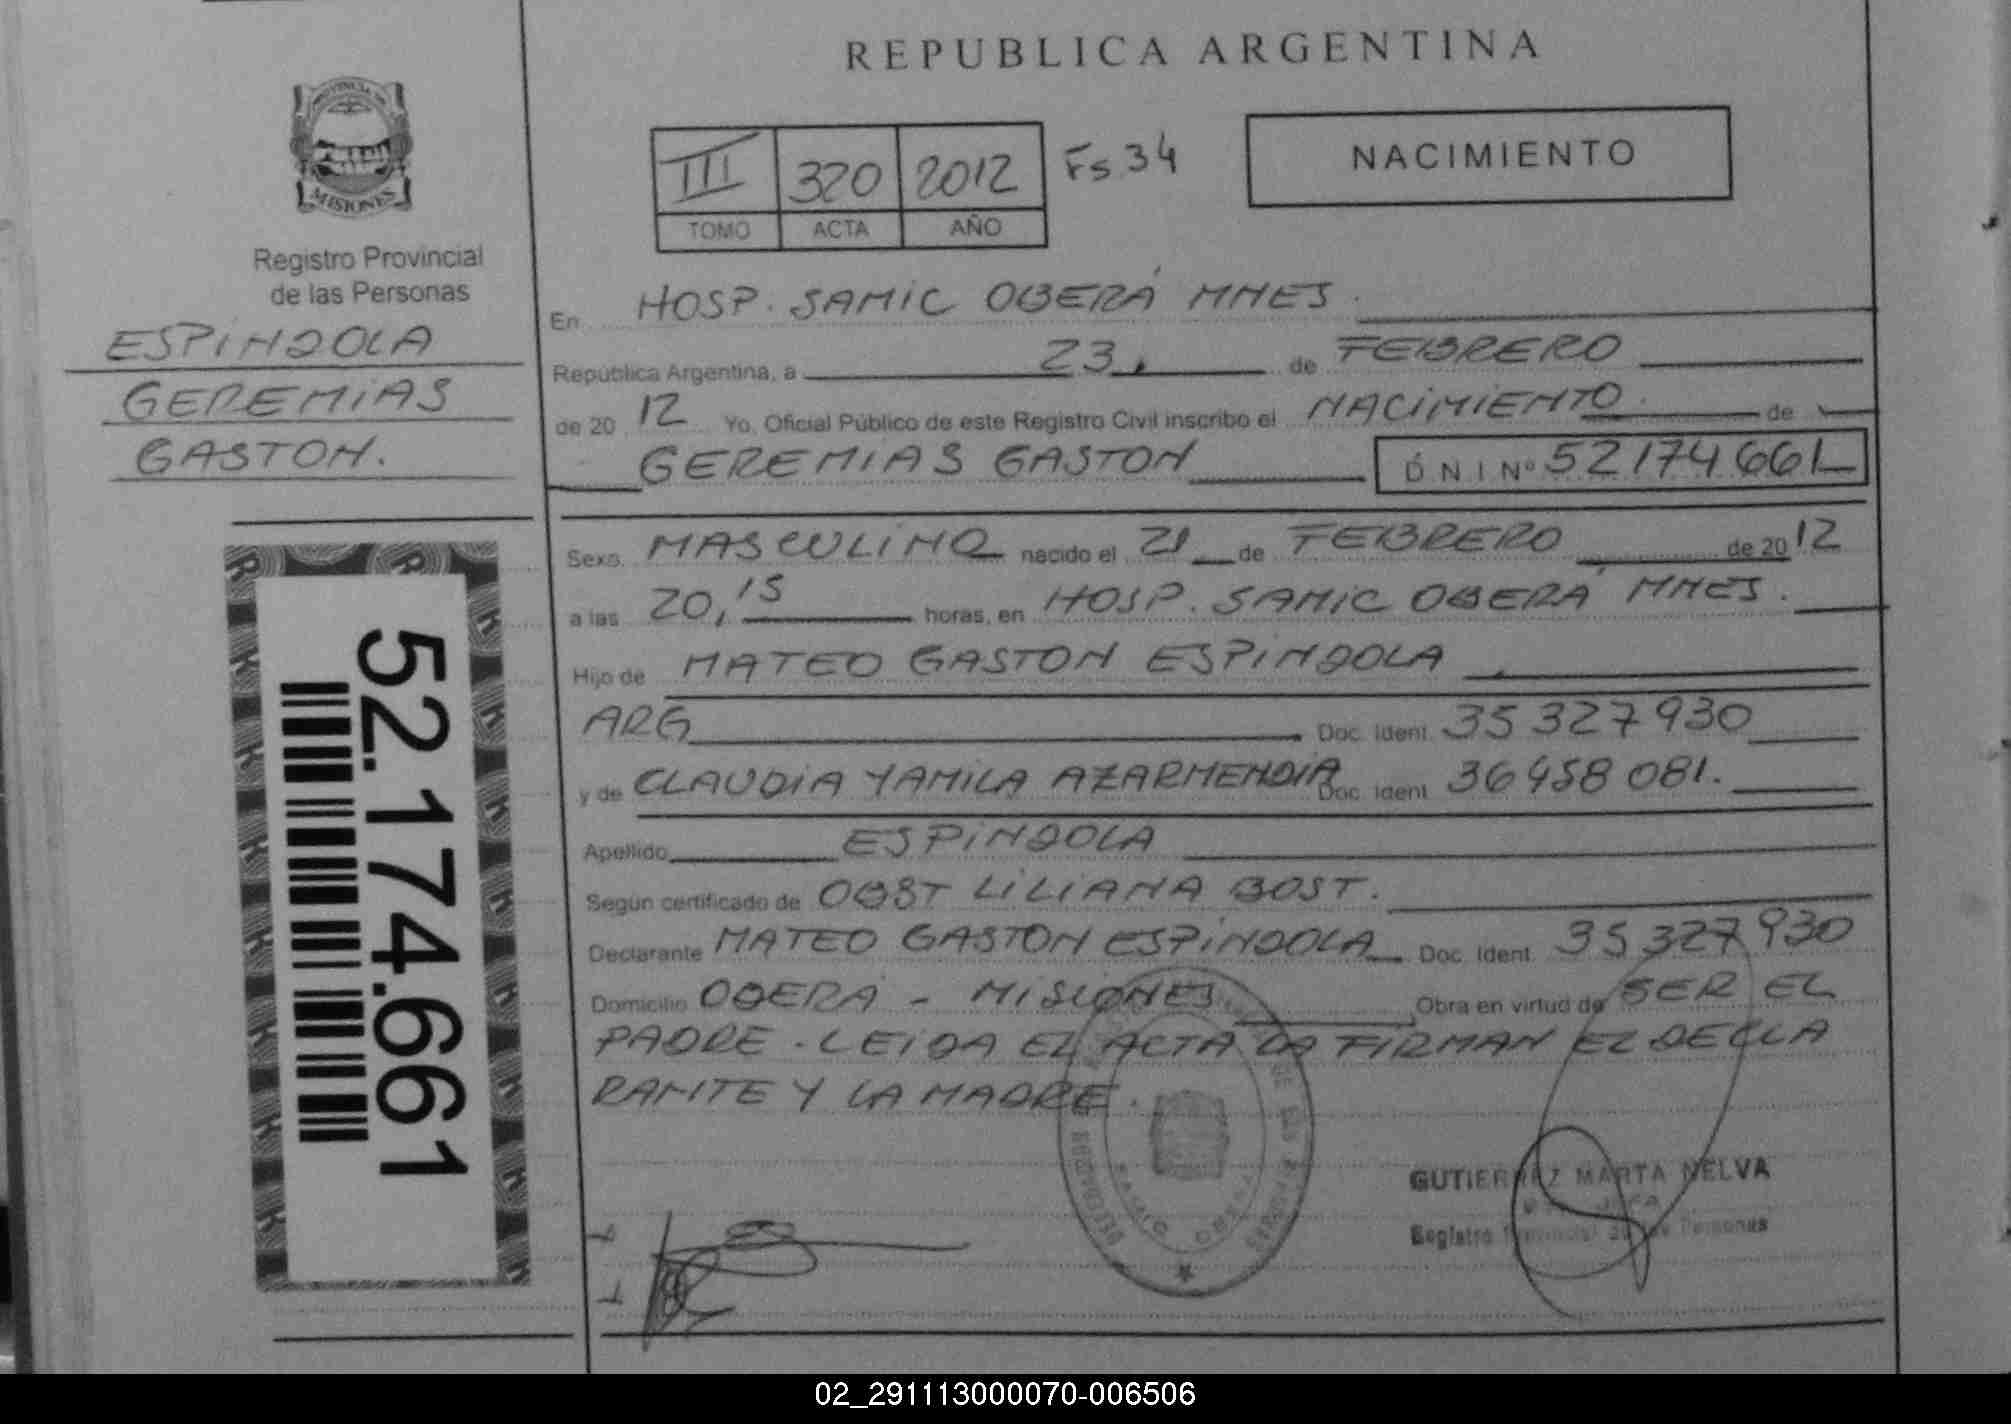 REPUBLICA ARGENTINA
PROVINCIA DE
MISIONES
Registro Provincial
de las Personas
ESPINDOLA
GEREMIAS
GASTON.
52.174.661
III 320 2012 Fs 34
TOMO ACTA AÑO
NACIMIENTO
En HOSP. SAMIC OBERÁ MNES.
República Argentina, a 23 de FEBRERO
de 20 12 Yo, Oficial Público de este Registro Civil inscribo el NACIMIENTO de
GEREMIAS GASTON D.N.I Nº 52174661
Sexo MASCULINO nacido el 21 de FEBRERO de 20 12
a las 20,15 horas, en HOSP. SAMIC OBERÁ MNES.
Hijo de MATEO GASTON ESPINDOLA
ARG Doc. Ident. 35327930
y de CLAUDIA YAMILA AZARMENDIA Doc. Ident. 36458081.
Apellido ESPINDOLA
Según certificado de OBST LILIANA BOST.
Declarante MATEO GASTON ESPINDOLA Doc. Ident. 35327930
Domicilio OBERÁ - MISIONES Obra en virtud de SER EL
PADRE. LEIDA EL ACTA LA FIRMAN EL DECLA
RANTE Y LA MADRE.
GUTIERREZ MARTA NELVA
Registro Provincial de las Personas
02_291113000070-006506